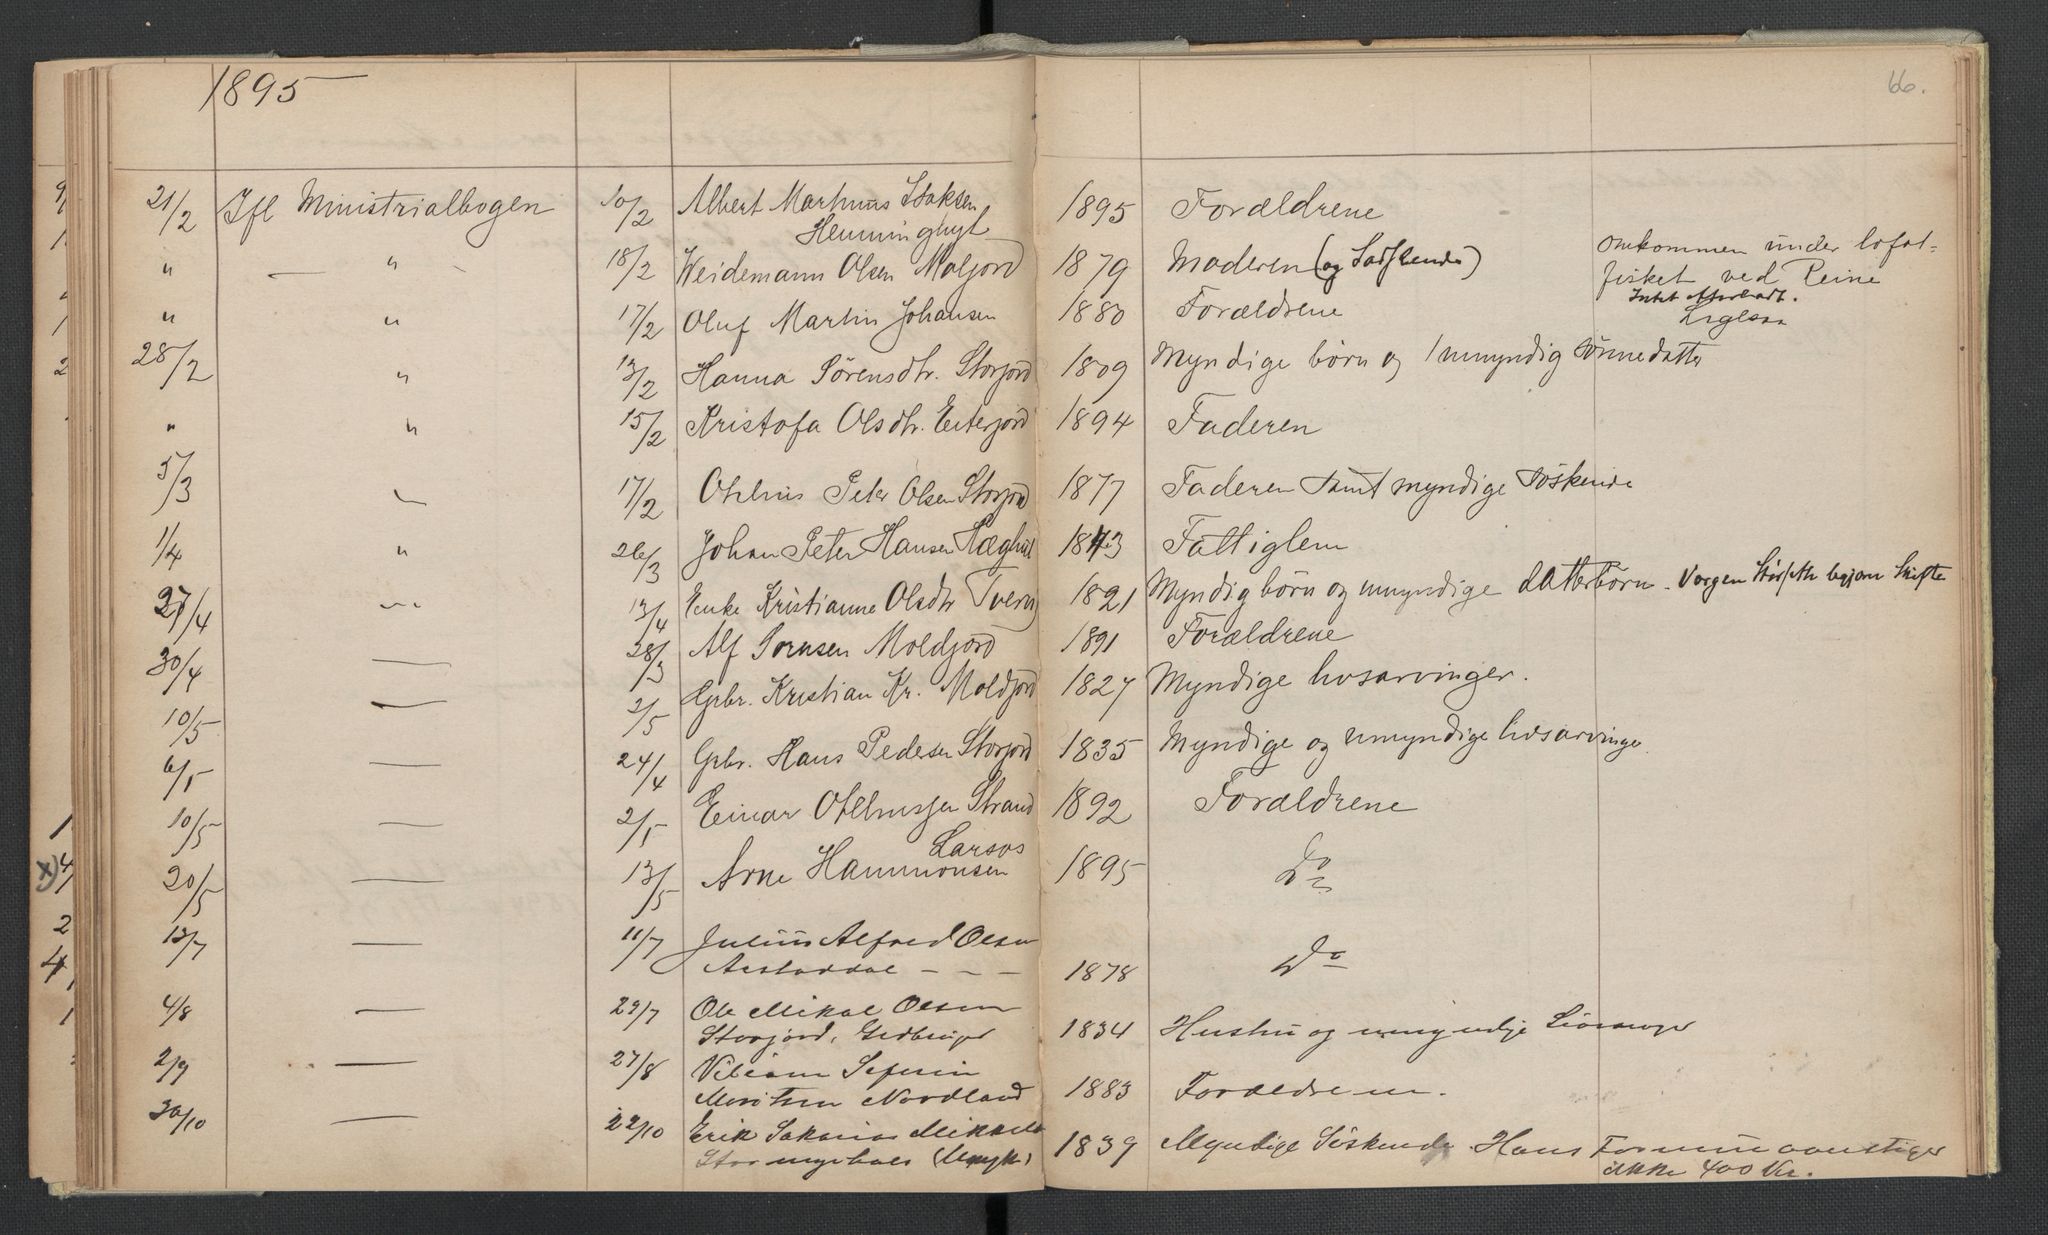 1895
66.
21/2 Ifl Ministrialbogen 10/2 Albert Martinus Isaksen 1895 Forældrene
Hemminghyt
" — " — 18/2 Weidemann Olsen Moljord 1879 Moderen (og Sødskende) omkommen under lofot-
fisket ved Reine
" " 17/2 Oluf Martin Johansen 1880 Forældrene Intet efterladt.
28/2 " 13/2 Hanna Sørensdtr. Storjord 1809 Myndige børn og 1 umyndig sønnedatter
" " 15/2 Kristofa Olsdtr. Eiterjord 1894 Faderen
5/3 — 17/2 Othelius Peter Olsen Storjord 1877 Faderen samt myndige søskende
1/4 " 26/3 Johan Peter Hansen 1873 Fattiglem
27/4 — 13/4 Kristianne Olsdtr Tverå 1821 Myndig børn og umyndige datterbørn. begjær Skifte
30/4 — 28/3 Alf Sørnsen Moldjord 1891 Forældrene
— 2/5 Grbr. Kristian Kr. Moldjord 1827 Myndige livsarvinger.
10/5
6/5 — 24/4 Grbr. Hans Pedersen Storjord 1835 Myndige og umyndige livsarvinger
10/5 — 2/5 Einar Othelius­sen Strand 1892 Forældrene
Larsos
20/5 — 13/5 Arne Hammonsen 1895 Do
13/7 — 11/7 Julius Alfred Olsen
— — — 1878 Do
4/8 — 29/7 Ole Mikal Olsen
Storjord, Grdbruger 1834 Hustru og umyndige Livsarvinger
2/9 — 27/8 Viliam Seferin
Moritsen Nordland 1883 Forældrene.
30/10 — 22/10 Erik Sakarias Mikkels
1839 Myndige Søskende Hans Formue overstiger
ikke 400 Kr.